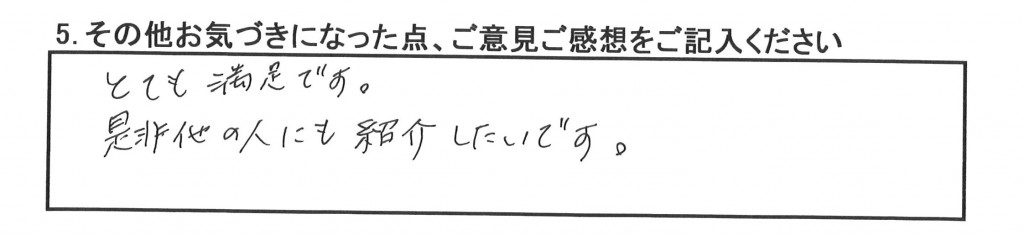 5.その他お気づきになった点、ご意見ご感想をご記入ください
とても満足です。
是非他の人にも紹介したいです。